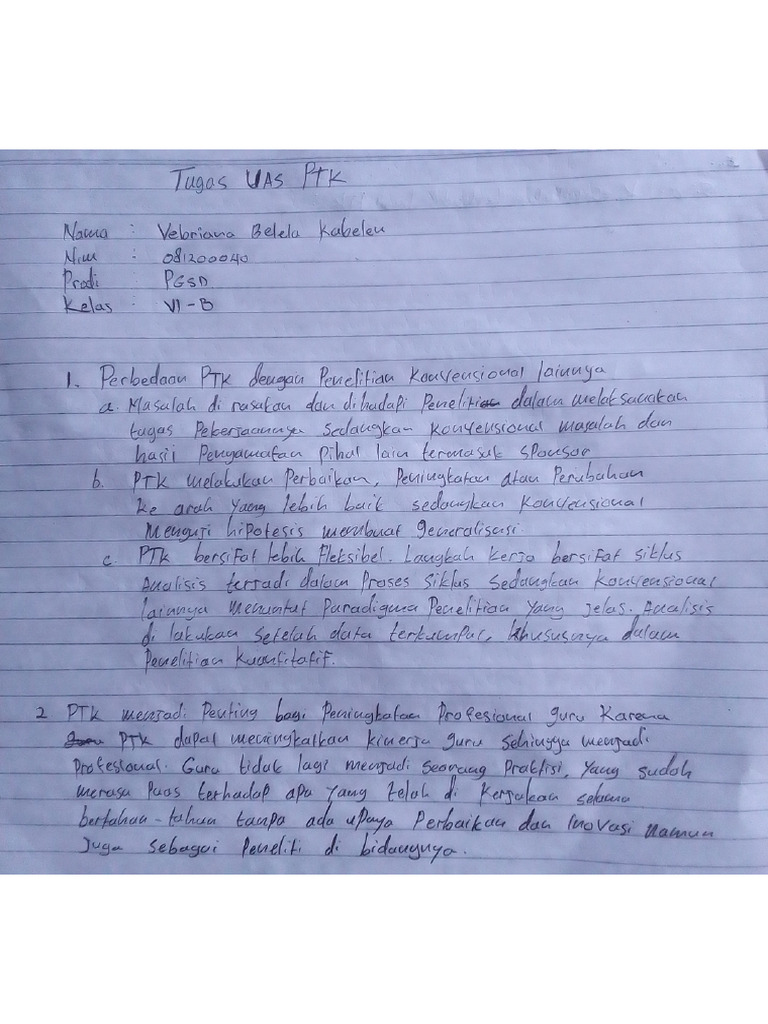 Tugas UAS PTK
Nama : Vebriana Belela Kabelen
Nim : 081200040
Prodi : PGSD
Kelas : VI-B
1. Perbedaan PTK dengan Penelitian Konvensional lainnya
a. Masalah di rasakan dan dihadapi Peneliti dalam melaksanakan
tugas Pekerjaannya sedangkan Konvensional masalah dan
hasil Pengamatan Pihal lain termasuk sponsor
b. PTK melakukan Perbaikan, Peningkatan atau Perubahan
ke arah yang lebih baik sedangkan Konvensional
Menguji hipotesis membuat generalisasi.
c. PTK bersifat lebih fleksibel. Langkah kerja bersifat siklus
Analisis terjadi dalam Proses siklus sedangkan Konvensional
lainnya Menuntut Paradigma Penelitian yang jelas. Analisis
di lakukan setelah data terkumpul, khususnya dalam
Penelitian Kuantitatif.
2 PTK menjadi Penting bagi Peningkatan Profesional guru Karena
PTK dapat meningkatkan kinerja guru sehingga menjadi
Profesional. Guru tidak lagi menjadi seorang Praktisi, yang sudah
merasa Puas terhadap apa yang telah di Kerjakan selama
bertahan-tahun tanpa ada upaya Perbaikan dan inovasi namun
Juga sebagai Peneliti di bidangnya.